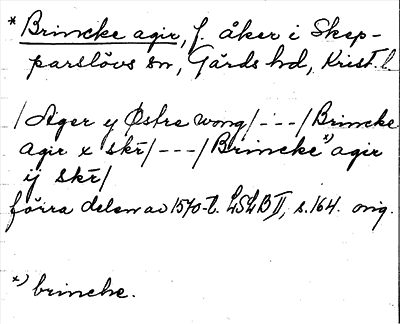 * Brincke agir, f. åker i Skep-
parslövs sn, Gärds hd, Krist. l.
/Ager y Østre wong/ - - - /Brincke
agir x skr̄/ - - - /Brincke x) agir
ij skr̄/
förra delen av 1570-t. LSLB II, s. 164. orig.
x) brincke.